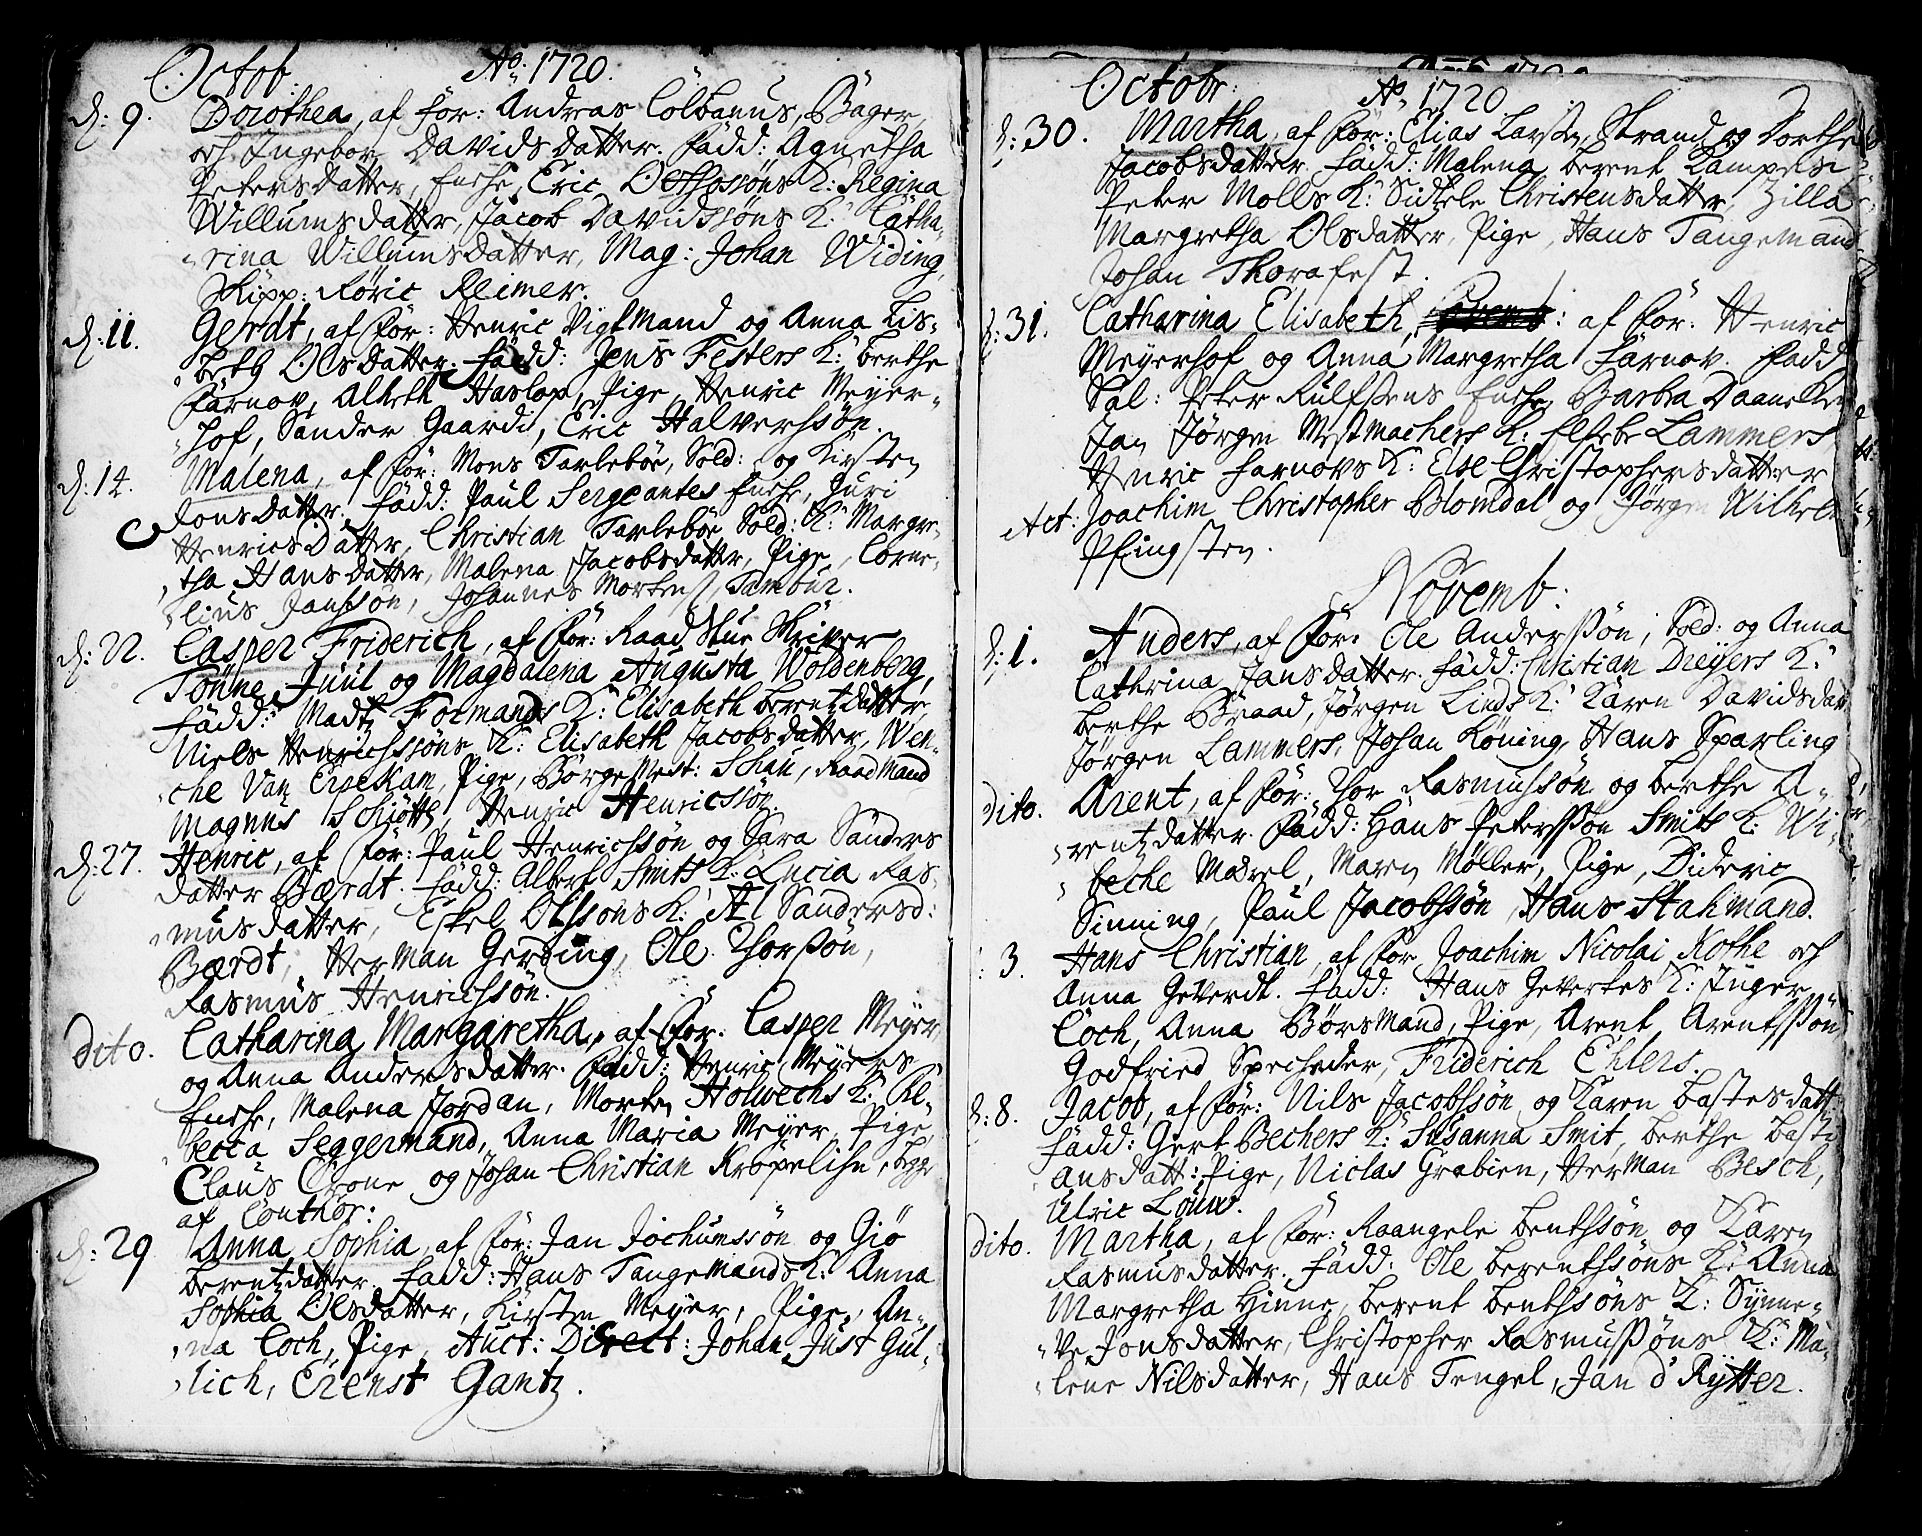 Octob. Aō. 1720.
d: 9. Dorothea, af för: Andreas Cölbanus, Bager,
och Ingebor Davids datter. fadd: Agnetha
Peters datter, Enche, Eric Olsens K: Regina
Willums datter, Jacob Davidssöns K: Catha-
rina Willums datter, Mag: Johan Widing,
Skipp: Röric Reimer.
d: 11. Gerdt, af för: Henric Vigtmand og Anna Lis-
beth Ols datter. fadd: Jens Festers K: berthe
Farnov, Alheth Haslop, Pige, Henric Meyer-
hof, Sander Gaard, Eric Halverssön.
d: 14. Malena, af för: Mons Tarleböe, Sold: og Kirsten
Jons datter, fadd: Paul Sergeantes Enche, Guri
Henrics Datter, Christian Tarleböe Sold: K: Margre-
tha Hans datter, Malena Jacobs datter, Pige, Corne-
lius Janssön, Johannes Mortens, Tambur.
d: 22. Casper Friderich, af för: Raad Stue Skriver
Tönne Juul og Magdalena Augusta Woldenberg,
fadd: Madtz Formands K: Elisabeth berentz datter,
Niels Henrichssöns K: Elisabeth Jacobs datter, Wen-
che Van Erpekam, Pige, Börge Mest: Schau, Raadmand
Magnus Schiötte, Henric Henricssön.
d: 27. Henric, af för: Paul Henrichssön og Sara Sanders
datter Bærdt. fadd: Albert Smits K: Lucia Ras-
mus datter, Eskel Olssöns K: Al Sandersd:
Bærdt, Herman Gerding, Ole Thorssön,
Rasmus Henrichssön.
Dito. Catharina Margaretha, af för: Casper Meyer
og Anna Anders datter. fadd: Henric Meyers
Enche, Malena Jordan, Morten Holwechs K: Re-
becca Seggermand, Anna Maria Meyer, Pige,
Claus Crone og Johan Christian Kröpelihn, begge
af Conthor:
d: 29 Anna Sophia, af för: Jan Jochumssön og Giö
berentz datter. fadd: Hans Tangemands K: Anna
Sophia Olsdatter, Kirsten Meyer, Pige, An-
na Coch, Pige, Auct: Direct: Johan Just Gul-
lich, Erenst Gantz.
Octobr: Aō. 1720
d: 30. Martha, af för: Elias Larsen Strand og Dorthe
Jacobs datter. fadd: Malena berent Kampens
Peter Molls K: Sidsele Christens datter, Zilla
Margretha Olsdatter, Pige, Hans Tangemand
Johan Thorafest.
d: 31. Catharina Elisabeth, : af för: Henric
Meyerhof og Anna Margretha Farnov. fadd
Sal: Peter Rulfsens Enche, Barbra Daaneken
Jan Jörgen Mestmachers K: Elsebe Lammers,
Henric Farnovs K: Else Christophers datter
Act: Joachim Christopher Blomdal og Jörgen Wilhelm
Pfingsten.
Novemb:
d: 1. Anders, af för: Ole Anderssön, Sold: og Anna
Cathrina Jans datter. fadd: Christian Dreyers K:
berthe Braad, Jörgen Linds K: Karen Davids dat
Jörgen Lammers, Johan Köning, Hans Sparling
Dito. Arent, af för: Thor Rasmussön og berthe A-
rentz datter. fadd: Hans Peterssön Smits K: Wi-
beche Madrel, Maren Møller, Pige, Dideric
Sinning, Paul Jacobssön, Hans Stahmand.
: 3. Hans Christian, af för Joachim Nicolai Kothe och
Anna Geverdt. fadd: Hans Geverkes K: Inger
Coch, Anna Börsmand, Pige, Arent Arentssön,
Godfried Specheder, Friderich Ehlers.
d: 8. Jacob, af för: Nils Jacobssön og Karen Bastes datt:
fadd: Gert Bechers K: Susanna Smit, berthe Basti
ans datt: Pige, Niclas Grabien, Herman Besch,
Ulric Löuw.
Dito. Martha, af för: Raangele Benthssön og Karen
Rasmus datter. fadd: Ole berenthsöns K: Anna
Margretha Hinne, berent benthsöns K: Synne-
ve Jons datter, Christopher Rasmussöns K: Ma-
lene Nilsdatter, Hans Tengel, Jan d' Rytter.